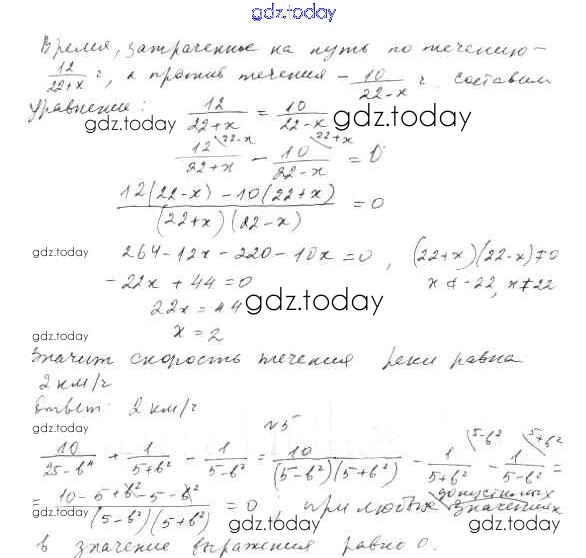 gdz.today
Время, затраченное на путь по течению –
12/(22+x) ч, а против течения – 10/(22-x) ч. Составим
gdz.today
уравнение: 12/(22+x) = 10/(22-x)
gdz.today gdz.today
12/(22+x) \22-x - 10/(22-x) \22+x = 0
(12(22-x) - 10(22+x))/((22+x)(22-x)) = 0
gdz.today gdz.today
264-12x-220-10x=0, (22+x)(22-x)≠0
-22x+44=0 x≠-22, x≠22
22x=44
gdz.today
x=2
gdz.today
Значит скорость течения реки равна
2 км/ч
Ответ: 2 км/ч
gdz.today
№5
10/(25-b⁴) + 1/(5+b²) - 1/(5-b²) = 10/((5-b²)(5+b²)) - 1/(5+b²) \5-b² - 1/(5-b²) \5+b² =
gdz.today gdz.today
= (10-5+b²-5-b²)/((5-b²)(5+b²)) = 0 при любых допустимых значениях
gdz.today gdz.today
b значение выражения равно 0.